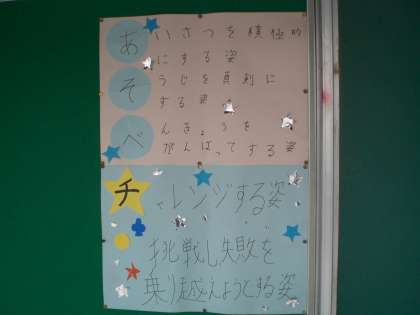 あいさつを積極的
にする姿
そうじを真剣に
する姿
べんきょうを
がんばってする姿
チャレンジする姿
挑戦し失敗を
乗り越えようとする姿